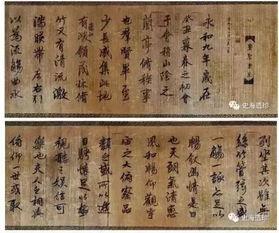 永和九年歲在
癸丑暮春之初會
于會稽山陰之
蘭亭脩稧事
也羣賢畢至
少長咸集此地
有峻領茂林脩
竹又有清流激
湍暎帶左右引
以為流觴曲水
史海遗印
列坐其次雖無
絲竹管弦之盛
一觴一詠亦足以
暢叙幽情是日
也天朗氣清惠
風和暢仰觀宇
宙之大俯察品
類之盛所以遊
目騁懷足以極
視聽之娛信可
樂也夫人之相與
俯仰一世或取
史海遗印